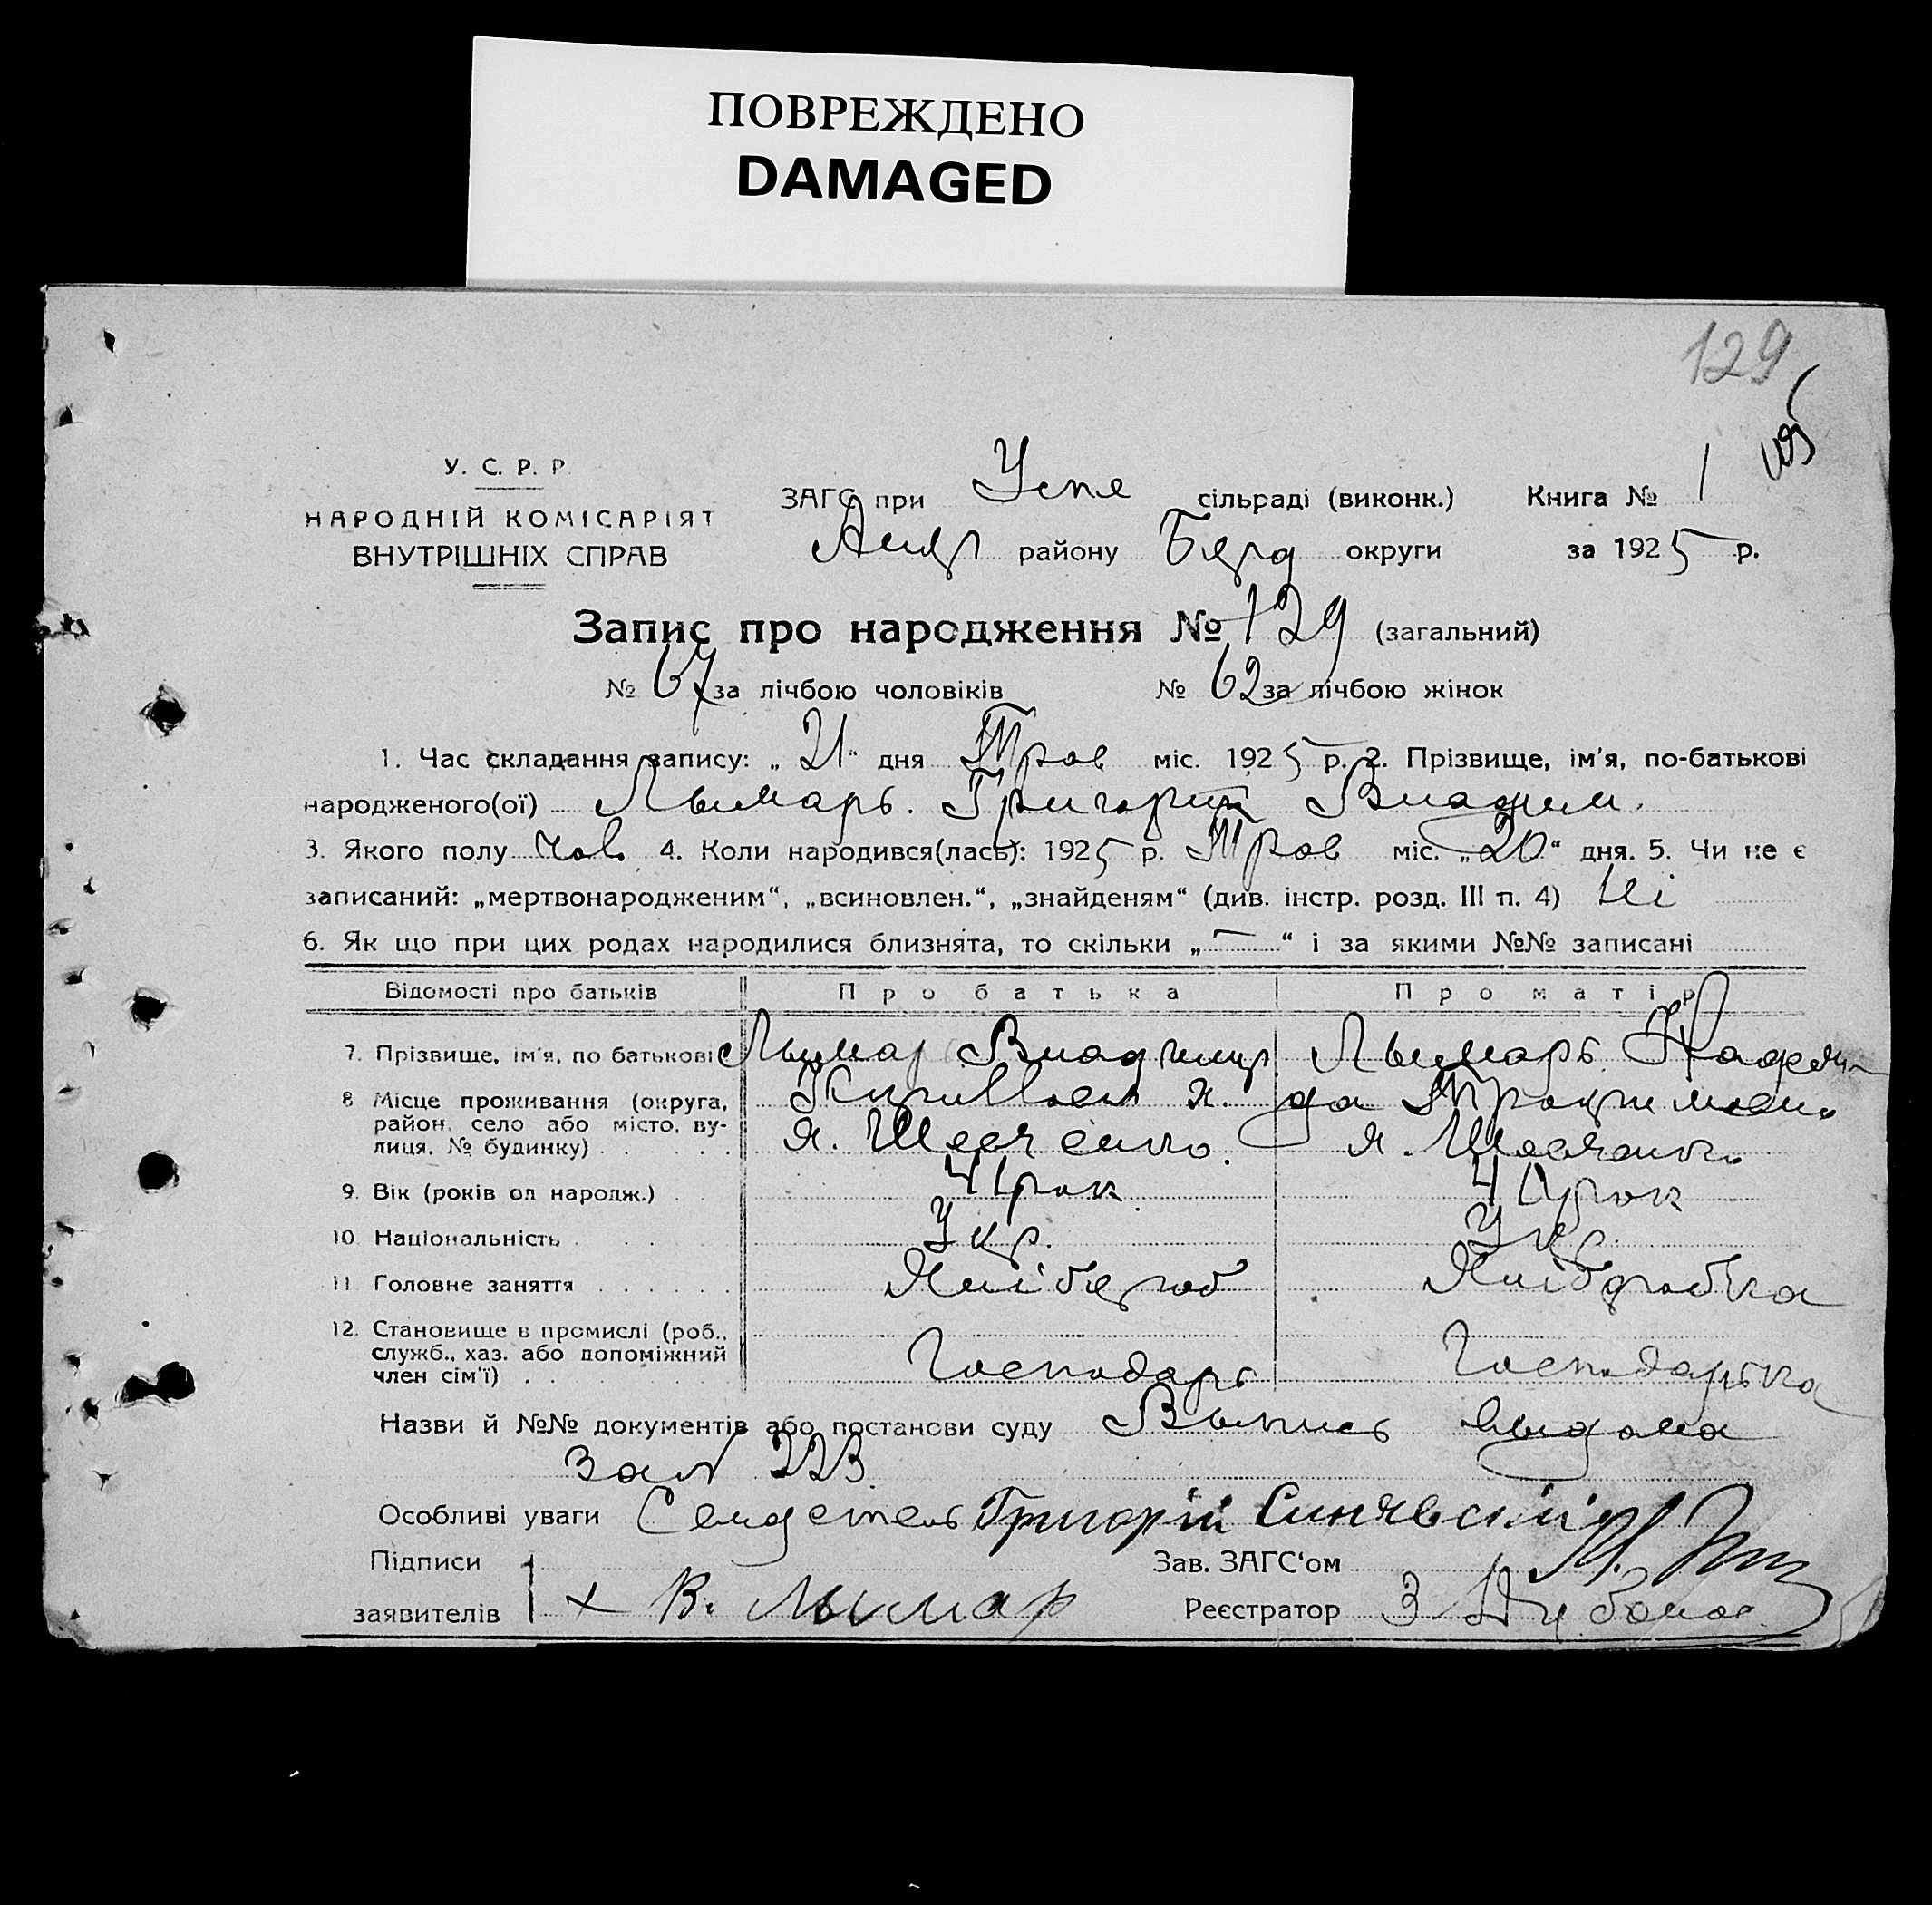 ПОВРЕЖДЕНО
DAMAGED
129
У. С. Р. Р.
НАРОДНІЙ КОМІСАРІЯТ
ВНУТРІШНІХ СПРАВ
ЗАГС при Успе сільраді (виконк.) Книга № 1
району округи за 1925 р.
Запис про народження № 129 (загальний)
№ 67 за лічбою чоловіків № 62 за лічбою жінок
1. Час складання запису: „ 21 “ дня Трав міс. 1925 р. 2. Прізвище, ім'я, по-батькові
народженого(ої) Лымарь. Григорий Владим.
3. Якого полу чов. 4. Коли народився(лась): 1925 р. Трав міс. „ 20 “ дня. 5. Чи не є
записаний: „мертвонародженим“, „всиновлен.“, „знайденям“ (див. інстр. розд. III п. 4) Ні
6. Як що при цих родах народилися близнята, то скільки „ — “ і за якими №№ записані
Відомості про батьків Про батька Про матір
7. Прізвище, ім'я, по батькові Лымар Владимир Лымарь Надеж
8 Місце проживання (округа, да
район, село або місто, ву-
лиця, № будинку) х. Шевченко. х. Шевченко
9. Вік (років од народж.) 41 рок 41 рок
10. Національність Укр. Укр.
11 Головне заняття Хлібороб Хлібробка
12. Становище в промислі (роб.,
служб., хаз. або допоміжний
член сім'ї) Господарь Господарька
Назви й №№ документів або постанови суду Выпись выдана
за №
Особливі уваги Свидетель Григорій Синявскій
Підписи Зав. ЗАГС'ом
заявителів + В. Лымар Реєстратор